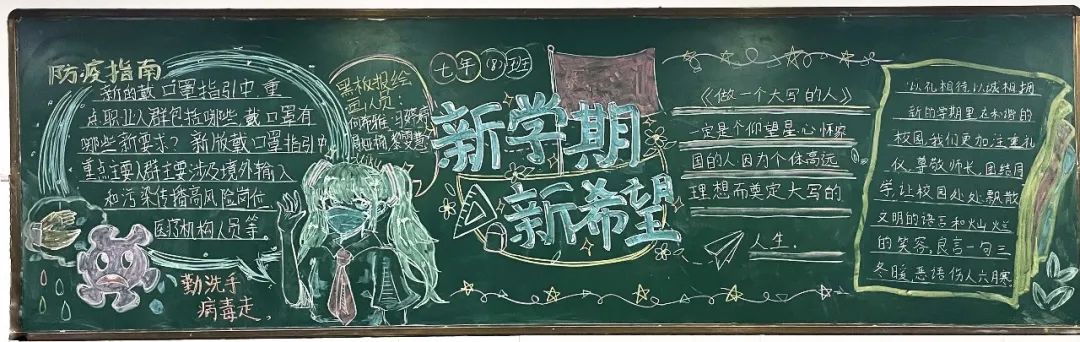 防疫指南
新的戴口罩指引中重
点职业人群包括哪些戴口罩有
哪些新要求？新版戴口罩指引中
重点主要人群主要涉及境外输入
和污染传播高风险岗位
医疗机构人员等
勤洗手
病毒走,
黑板报绘
画人员：
七年(8)班
新学期
新希望
《做一个大写的人》
一定是个仰望星,心怀家
国的人.因为个体高远
理想而奠定大写的
人生.
以礼相待以诚相拥
新的学期里在和谐的
校园,我们更加注重礼
仪,尊敬师长,团结同
学,让校园处处飘散
文明的语言和灿烂
的笑容,良言一句三
冬暖,恶语伤人六月寒